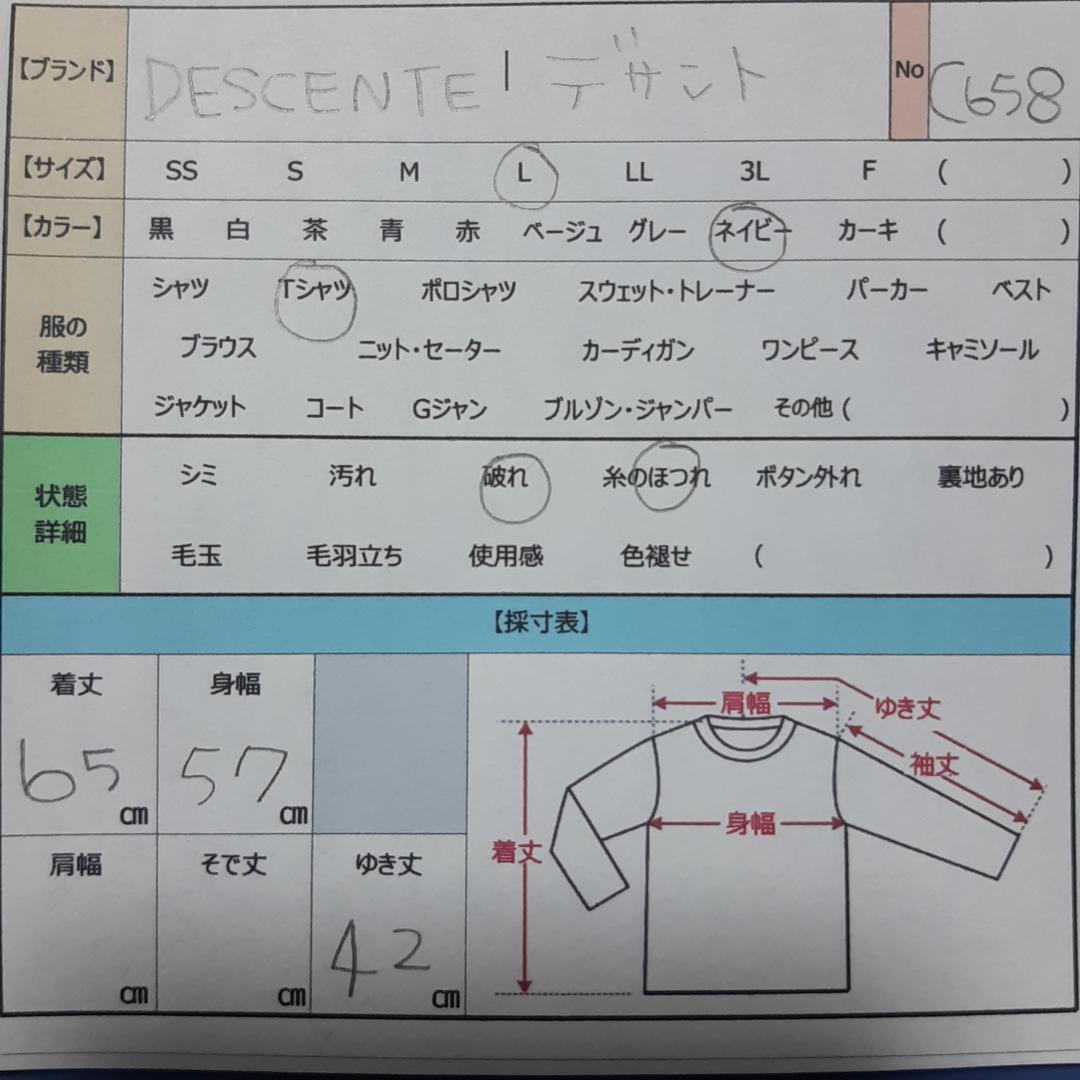 【ブランド】 DESCENTE | デサント No C658
【サイズ】 SS S M L LL 3L F ( )
【カラー】 黒 白 茶 青 赤 ベージュ グレー ネイビー カーキ ( )
服の種類
シャツ Tシャツ ポロシャツ スウェット・トレーナー パーカー ベスト
ブラウス ニット・セーター カーディガン ワンピース キャミソール
ジャケット コート Gジャン ブルゾン・ジャンパー その他 ( )
状態詳細
シミ 汚れ 破れ 糸のほつれ ボタン外れ 裏地あり
毛玉 毛羽立ち 使用感 色褪せ ( )
【採寸表】
着丈 身幅
65 cm 57 cm
肩幅 そで丈 ゆき丈
cm cm 42 cm
肩幅 ゆき丈
袖丈
身幅
着丈